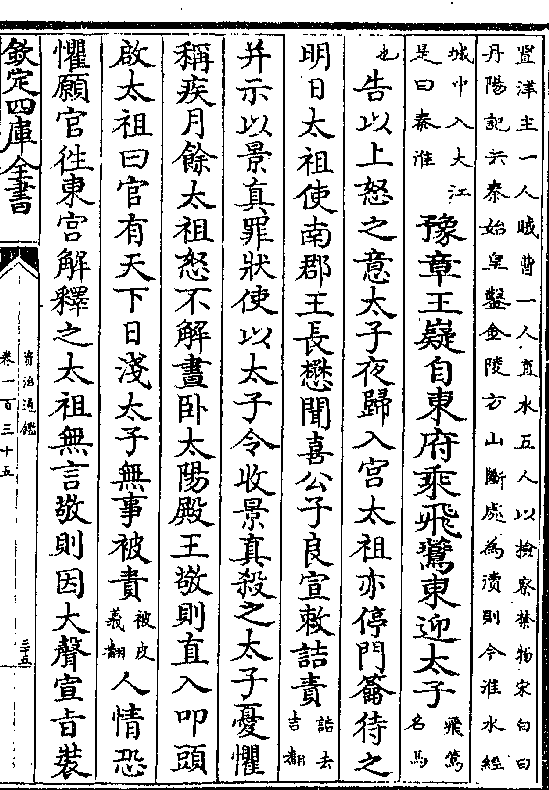 置津主一人賊曹一人直水五人以檢察禁物宋白曰
丹陽記云秦始皇鑿金陵方山斷處為瀆則今淮水經
城中入大江
是曰秦淮
豫章王嶷自東府乘飛鷰東迎太子
飛鷰
名馬
也
告以上怒之意太子夜歸入宫太祖亦停門籥待之
明日太祖使南郡王長懋聞喜公子良宣敕詰責
詰去
吉翻
并示以景真罪狀使以太子令收景真殺之太子憂懼
稱疾月餘太祖怒不解晝卧太陽殿王敬則直入叩頭
啟太祖曰官有天下日淺太子無事被責
被皮
義翻
人情恐
懼願官徃東宫解釋之太祖無言敬則因大聲宣㫖裝
欽定四庫全書
資治通鑑
卷一百三十五
二十五